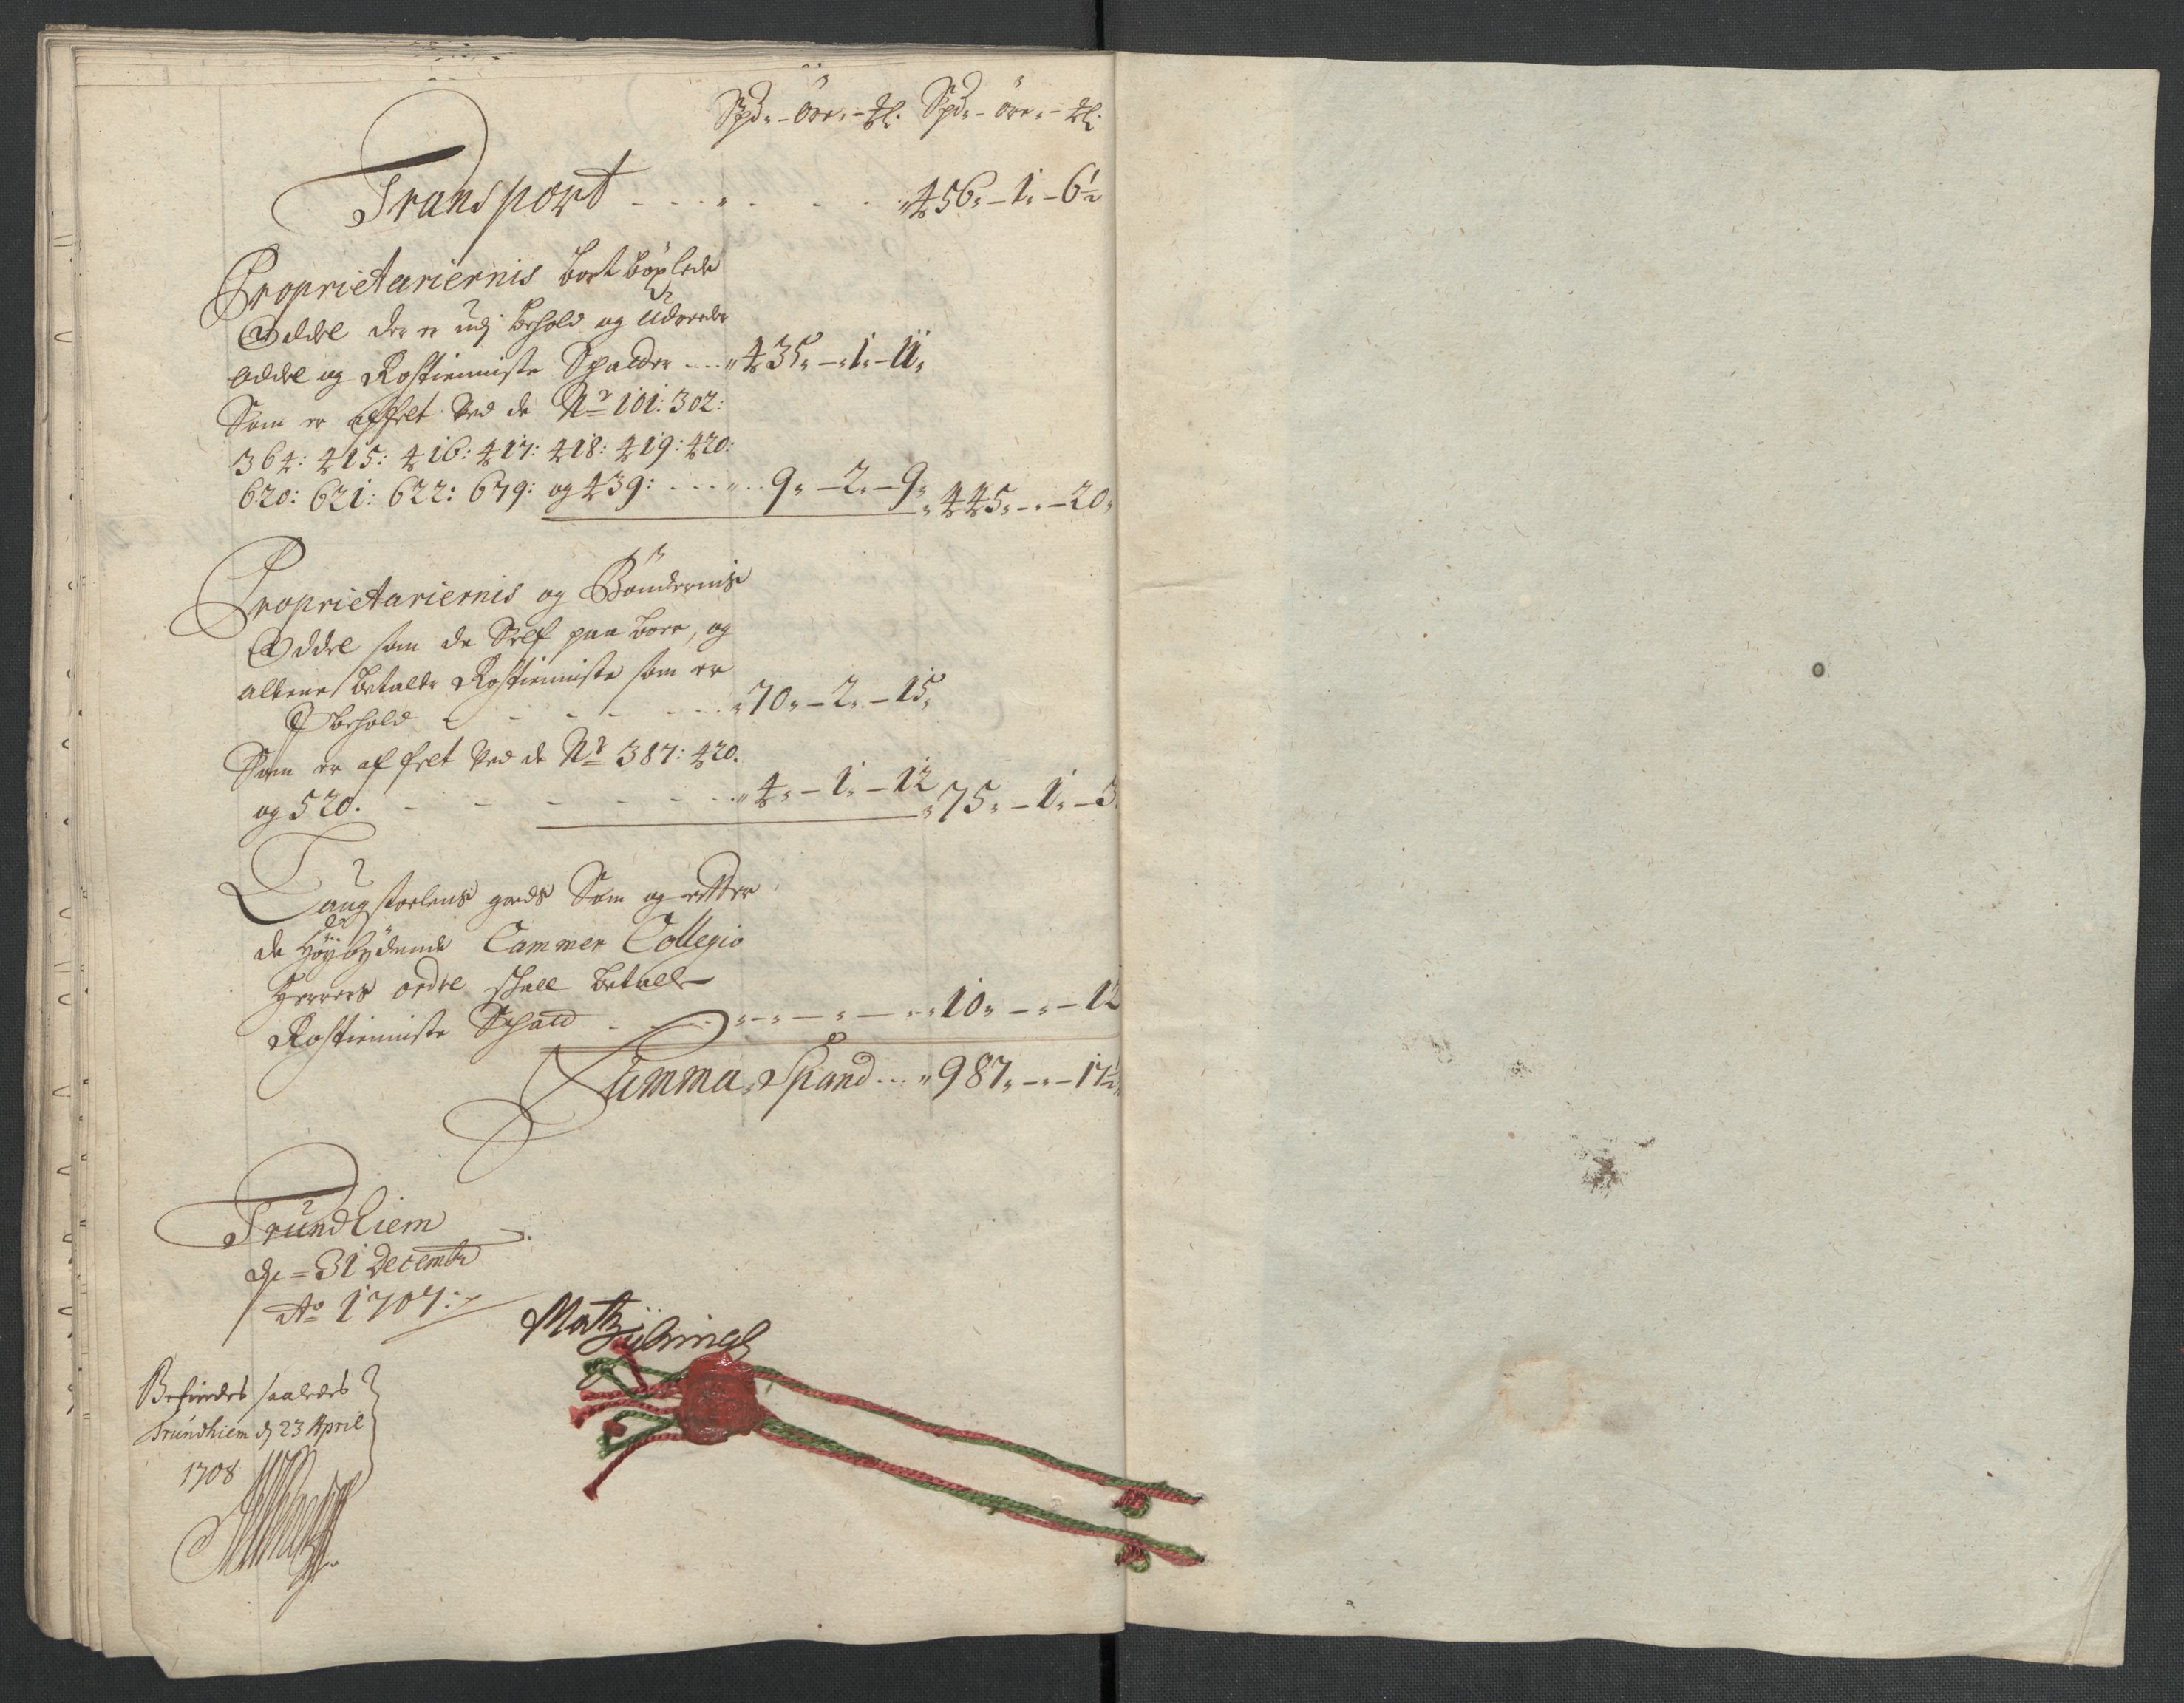 Spd. - öre. - #. Spd. - öre. - #.
Transport - - - " - - - - 456. - 1. - 6½
Proprietariernis bort böxlede
Oddel der er udj behold og Udreede
oddel og Rostienniste Spander ... 435. - 1. - 11.
Som er affelt ved de No 101: 302:
364: 415: 416: 417: 418: 419: 420:
620: 621: 622: 679: og 439: - - - 9. - 2. - 9. 445. - . - 20.
Proprietariernis og Böndernis
Oddel som de Self paa boer, og
allene betaler Rostienniste som er
J behold - - - - - - 70. - 2. - 15.
Som er af felt ved de No 387: 420.
og 520. - - - - - - 4. - 1. - 12 75. - 1. - 3.
Laugstoelens gods Som og efter
de Höybydende Cammer Collegio
Herrers ordre skall betalle
Rostienniste Spand - - - - - - 10. - . - 12
Summa Spand ... 987. - . - 17½
Trundhiem
de = 31 Decembr
Ao 1707:
Befindes saaledes
Trundhiem dj 23 April
1708